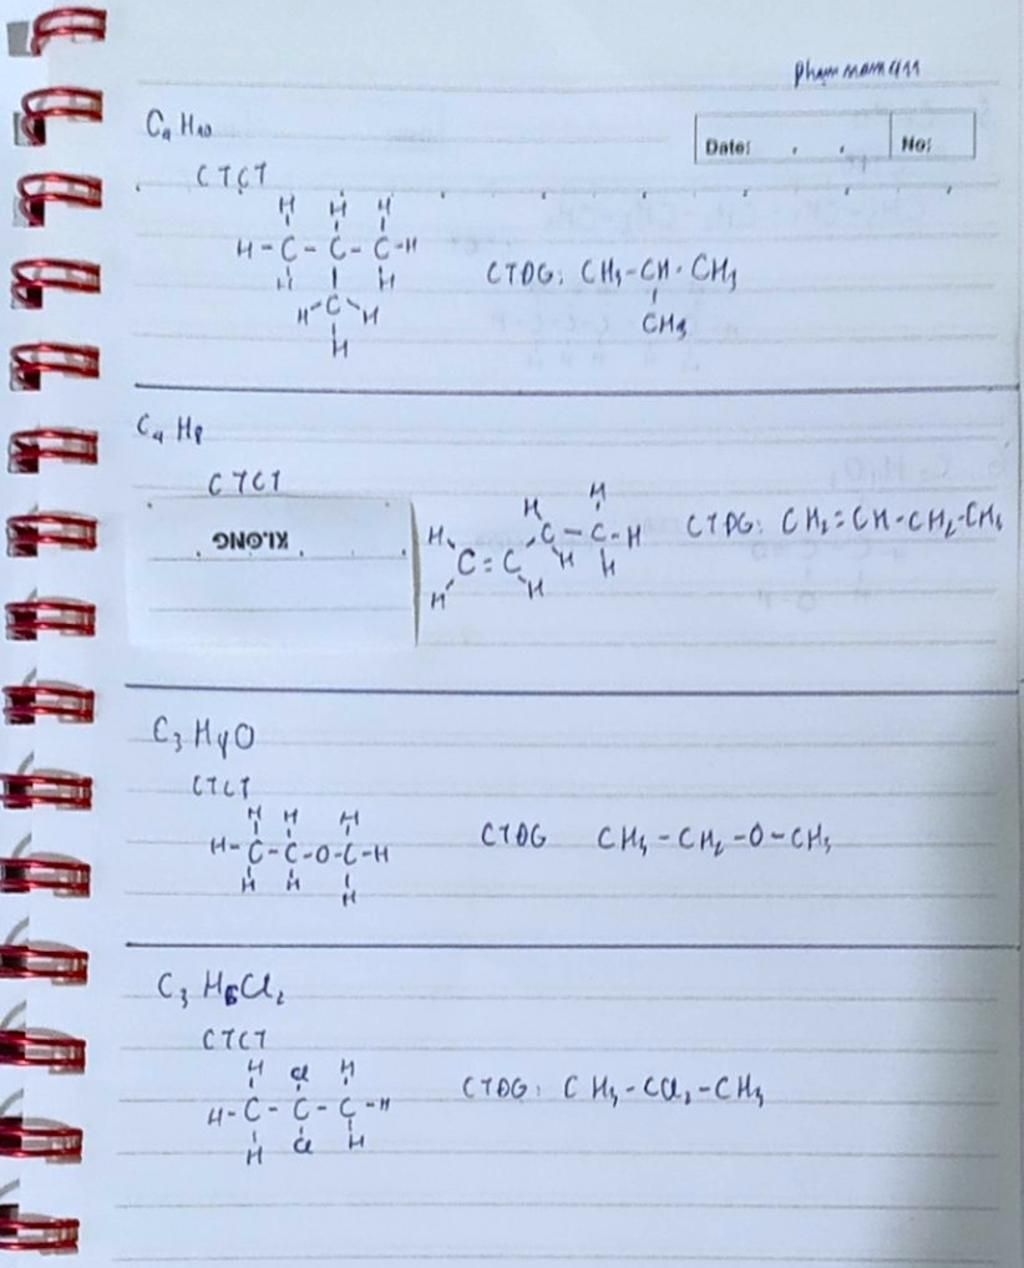 C₄ H₁₀
Date: No:
CTCT
H H H
H - C - C - C - H
H H
H - C - H
H
CTDG: CH₃-CH-CH₃
CH₃
C₄ H₈
CTCT
KLONG
H H
H C - C - H
C = C H H
H H
CTDG: CH₂=CH-CH₂-CH₃
C₃ HyO
CTCT
H H H
H - C - C - O - C - H
H H H
CTDG CH₃ - CH₂ - O - CH₃
C₃ H₆Cl₂
CTCT
H Cl H
H - C - C - C - H
H Cl H
CTDG: CH₃ - CCl₂ - CH₃